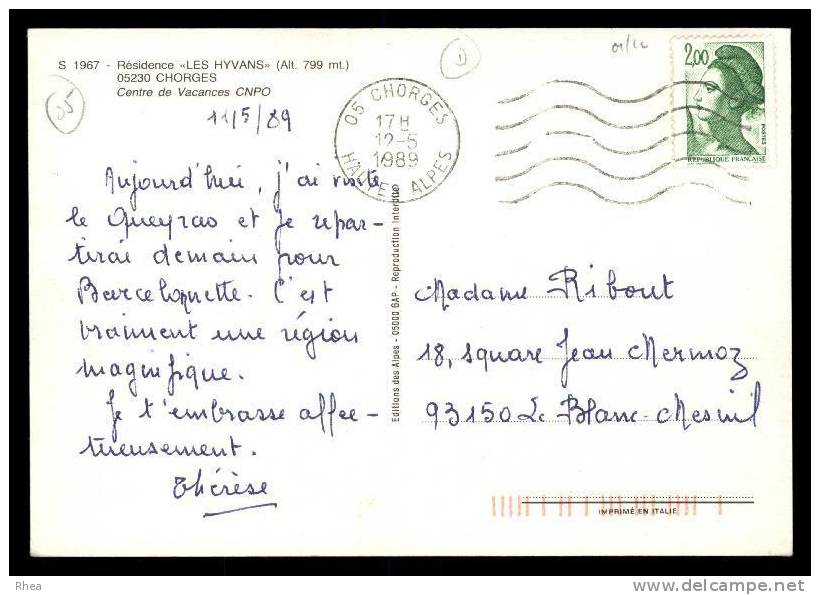 S 1967 - Résidence «LES HYVANS» (Alt. 799 mt.)
05230 CHORGES
Centre de Vacances CNPO
05
D
11/5/89
05 CHORGES
17H
12-5
1989
HAUTES ALPES
2,00
POSTES
REPUBLIQUE FRANÇAISE
Aujourd'hui, j'ai visité
le Queyras et je repar-
tirai demain pour
Barcelonnette. C'est
vraiment une région
magnifique.
Je t'embrasse affec-
tueusement.
Thérèse
Editions des Alpes - 05000 GAP - Reproduction interdite
Madame Ribout
18, square Jean Mermoz
93150 Le Blanc-Mesnil
IMPRIMÉ EN ITALIE
Rhea
www.delcampe.net